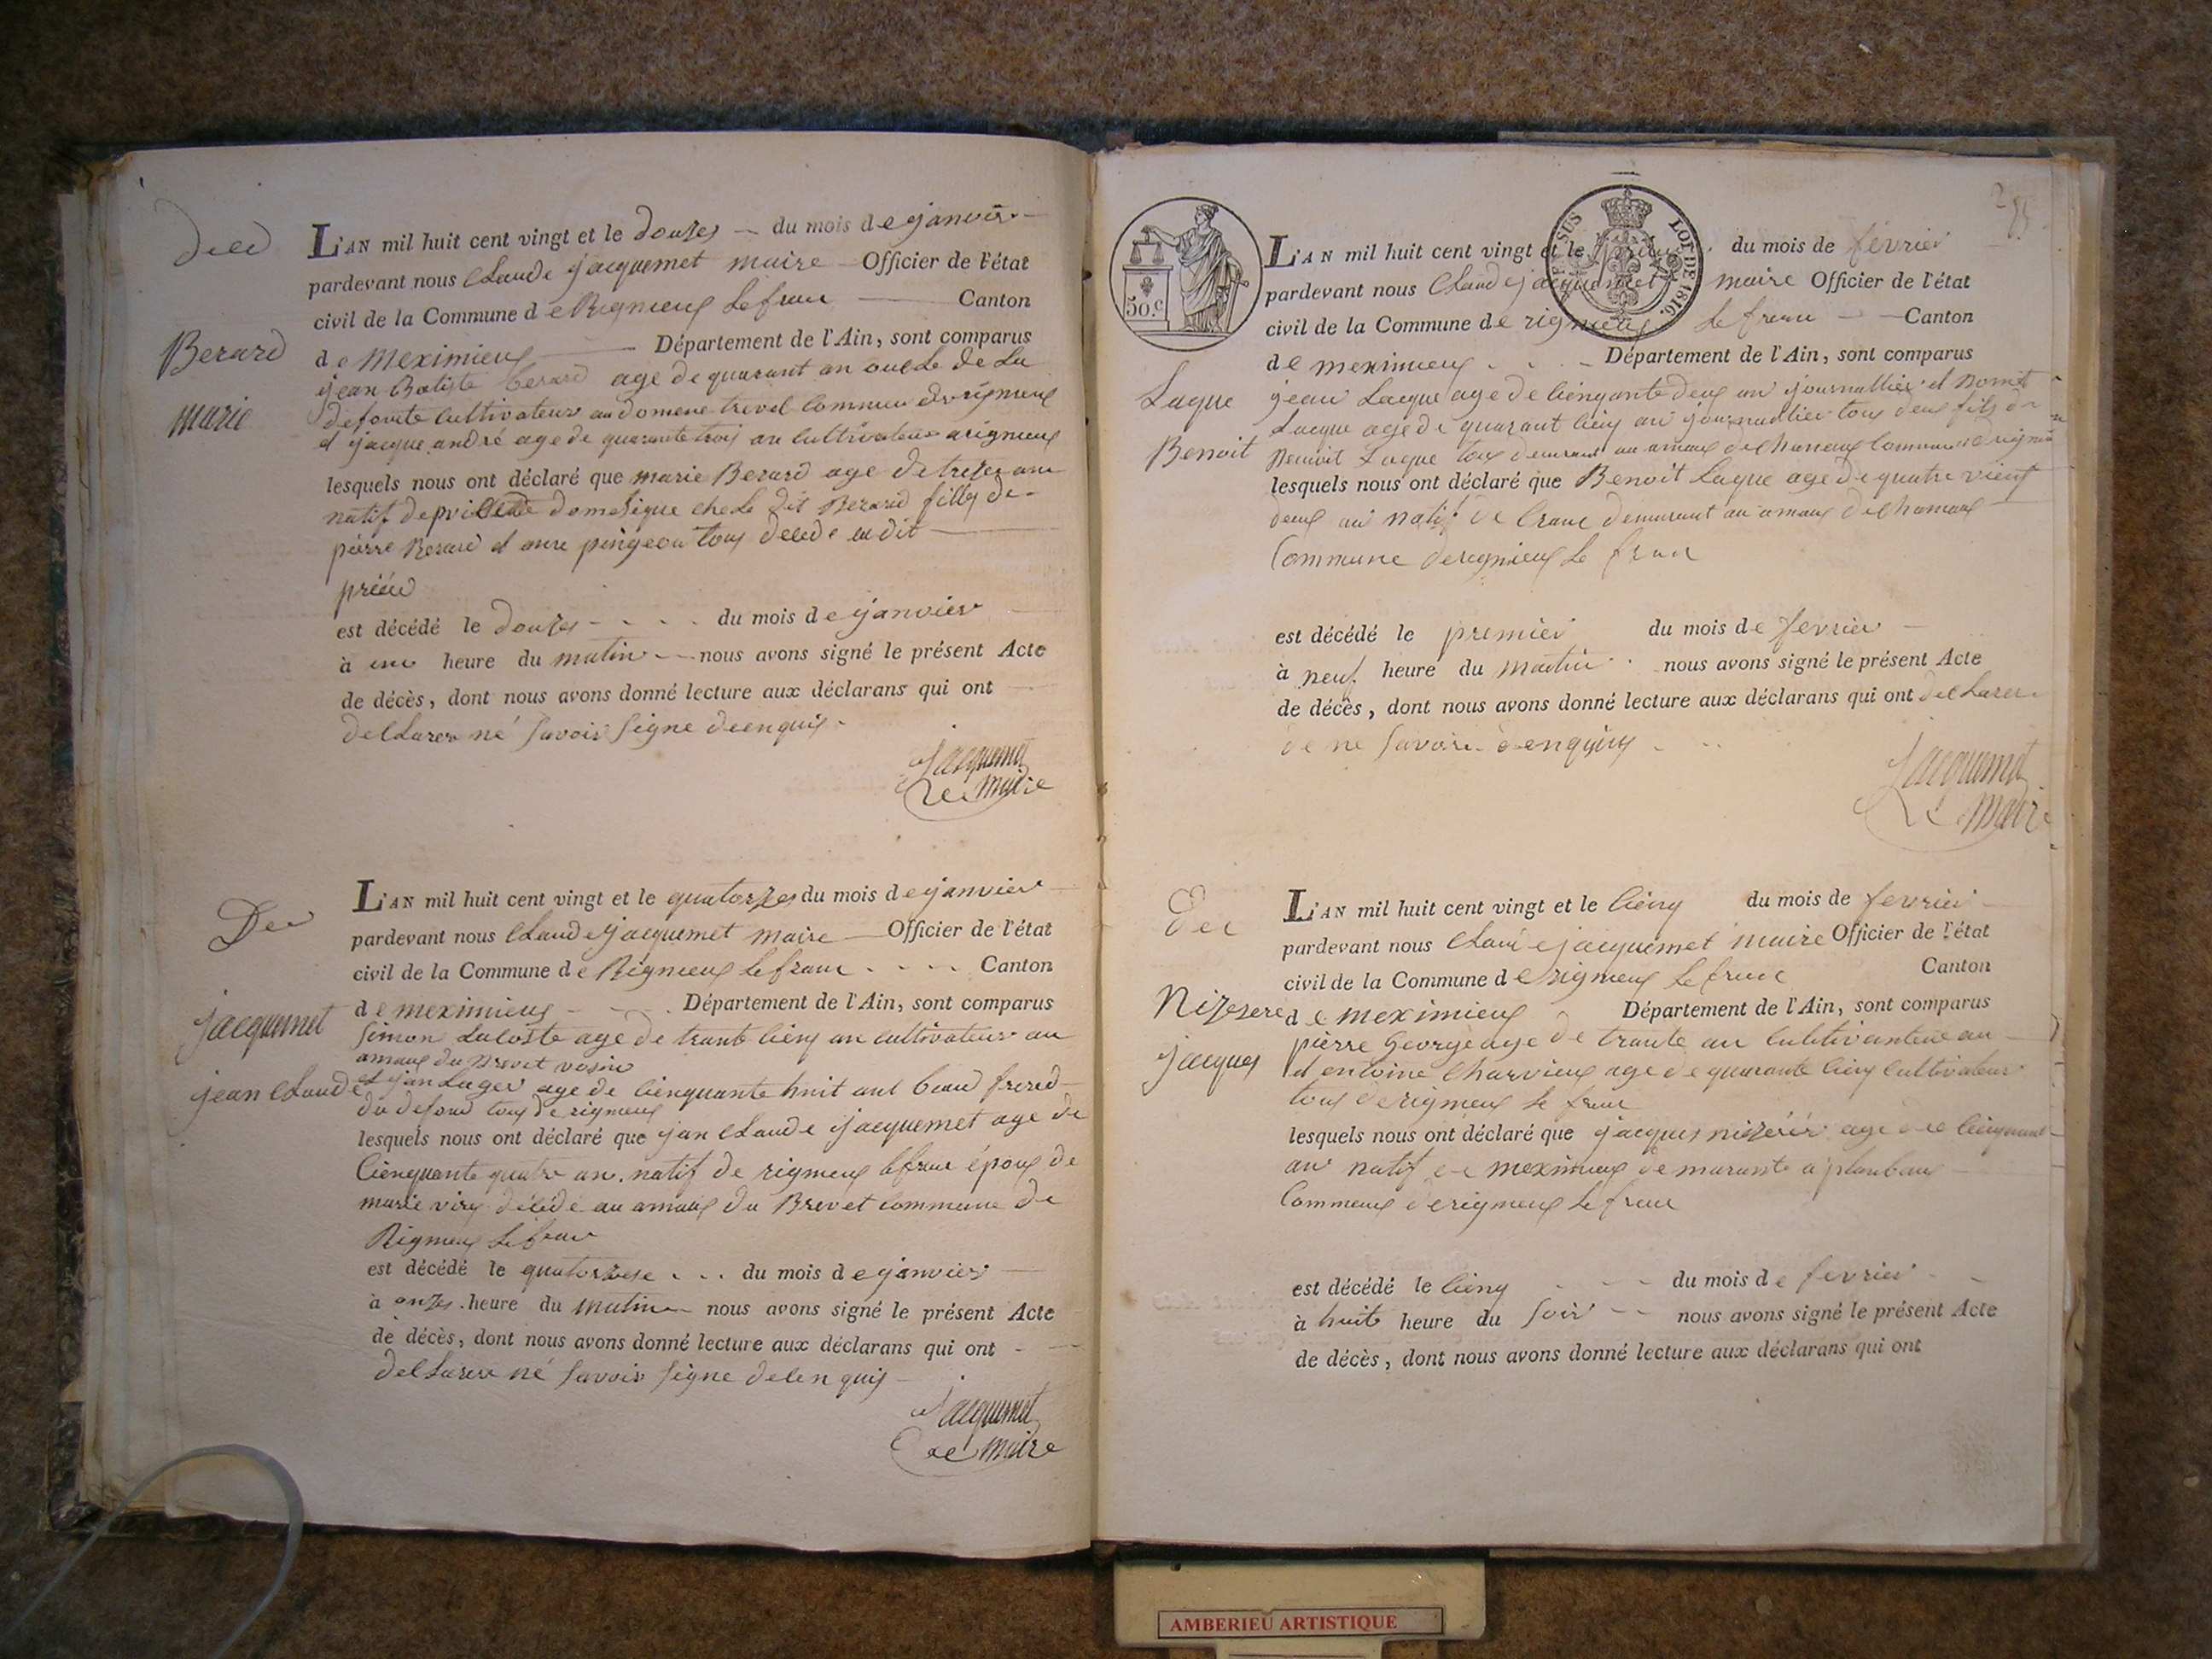 deed
Berard
marie
L'AN mil huit cent vingt et le douzes du mois de janvier
pardevant nous Claude jacquemet maire Officier de l'état
civil de la Commune de Rignieux le franc Canton
de meximieux Département de l'Ain, sont comparus
jean Batiste berard age de quarant an oncle de La
defonte cultivateur au domene trevel commun de rignieux
et jacque andré age de quarante trois an cultivateur a rignieux
lesquels nous ont déclaré que marie Berard age de trezes ans
natif de domesique che le dit Berard fillis de
pierre Berard et anre pingeon tous decede au dit
est décédé le douzes du mois de janvier
à une heure du matin nous avons signé le présent Acte
de décès, dont nous avons donné lecture aux déclarans qui ont
declarer né savoir signe de enquis
jacquemet
Le maire
Dec
jacquemet
jean Claude
L'AN mil huit cent vingt et le quatorzes du mois de janvier
pardevant nous Claude jacquemet maire Officier de l'état
civil de la Commune de Rignieux le franc Canton
de meximieux Département de l'Ain, sont comparus
Simon Lacoste age de trante cienq an cultivateur au
amaux du Brevet voisin
et jan Luger age de cienquante huit ant beau frere d
du defond tous de rignieux
lesquels nous ont déclaré que jan Claude jacquemet age de
cienquante quatre an natif de rignieux le franc époux de
marie viry décédé au amaux du Brevet commune de
Rignieux le franc
est décédé le quatorzese du mois de janvier
à onzes heure du matin nous avons signé le présent Acte
de décès, dont nous avons donné lecture aux déclarans qui ont
declarer né savoir signe de len quis
jacquemet
Le maire
50.c
SUS LOI DE 1816.
Laque
Benoit
L'AN mil huit cent vingt et le du mois de fevrier
pardevant nous Claude jacquemet maire Officier de l'état
civil de la Commune de rignieux le franc Canton
de meximieux Département de l'Ain, sont comparus
jean Lacque age de cienquante deux an journallier et
Lacque age de quarant cienq an journallier tous deux fils de
Benoit Laque tous demurant au amaux de commune de rignieux
lesquels nous ont déclaré que Benoit Laque age de quatre vient
deux an natif de Crane demurant au amaux
Commune de rignieux le franc
est décédé le premier du mois de fevrier
à neuf heure du matin nous avons signé le présent Acte
de décès, dont nous avons donné lecture aux déclarans qui ont declarer
de ne savoir de enquis
jacquemet
Le maire
Dec
Nizerere
jacques
L'AN mil huit cent vingt et le cienq du mois de fevrier
pardevant nous Claude jacquemet maire Officier de l'état
civil de la Commune de rignieux le franc Canton
de meximieux Département de l'Ain, sont comparus
pierre George age de trante an cultivanteur au
et entoine Charvieux age de quarante cienq cultivateur
tous de rignieux le franc
lesquels nous ont déclaré que jacques age de cienquant
an natif de meximieux demurante a planbeau
Commeus de rignieux le franc
est décédé le cienq du mois de fevrier
à huite heure du soir nous avons signé le présent Acte
de décès, dont nous avons donné lecture aux déclarans qui ont
AMBERIEU ARTISTIQUE